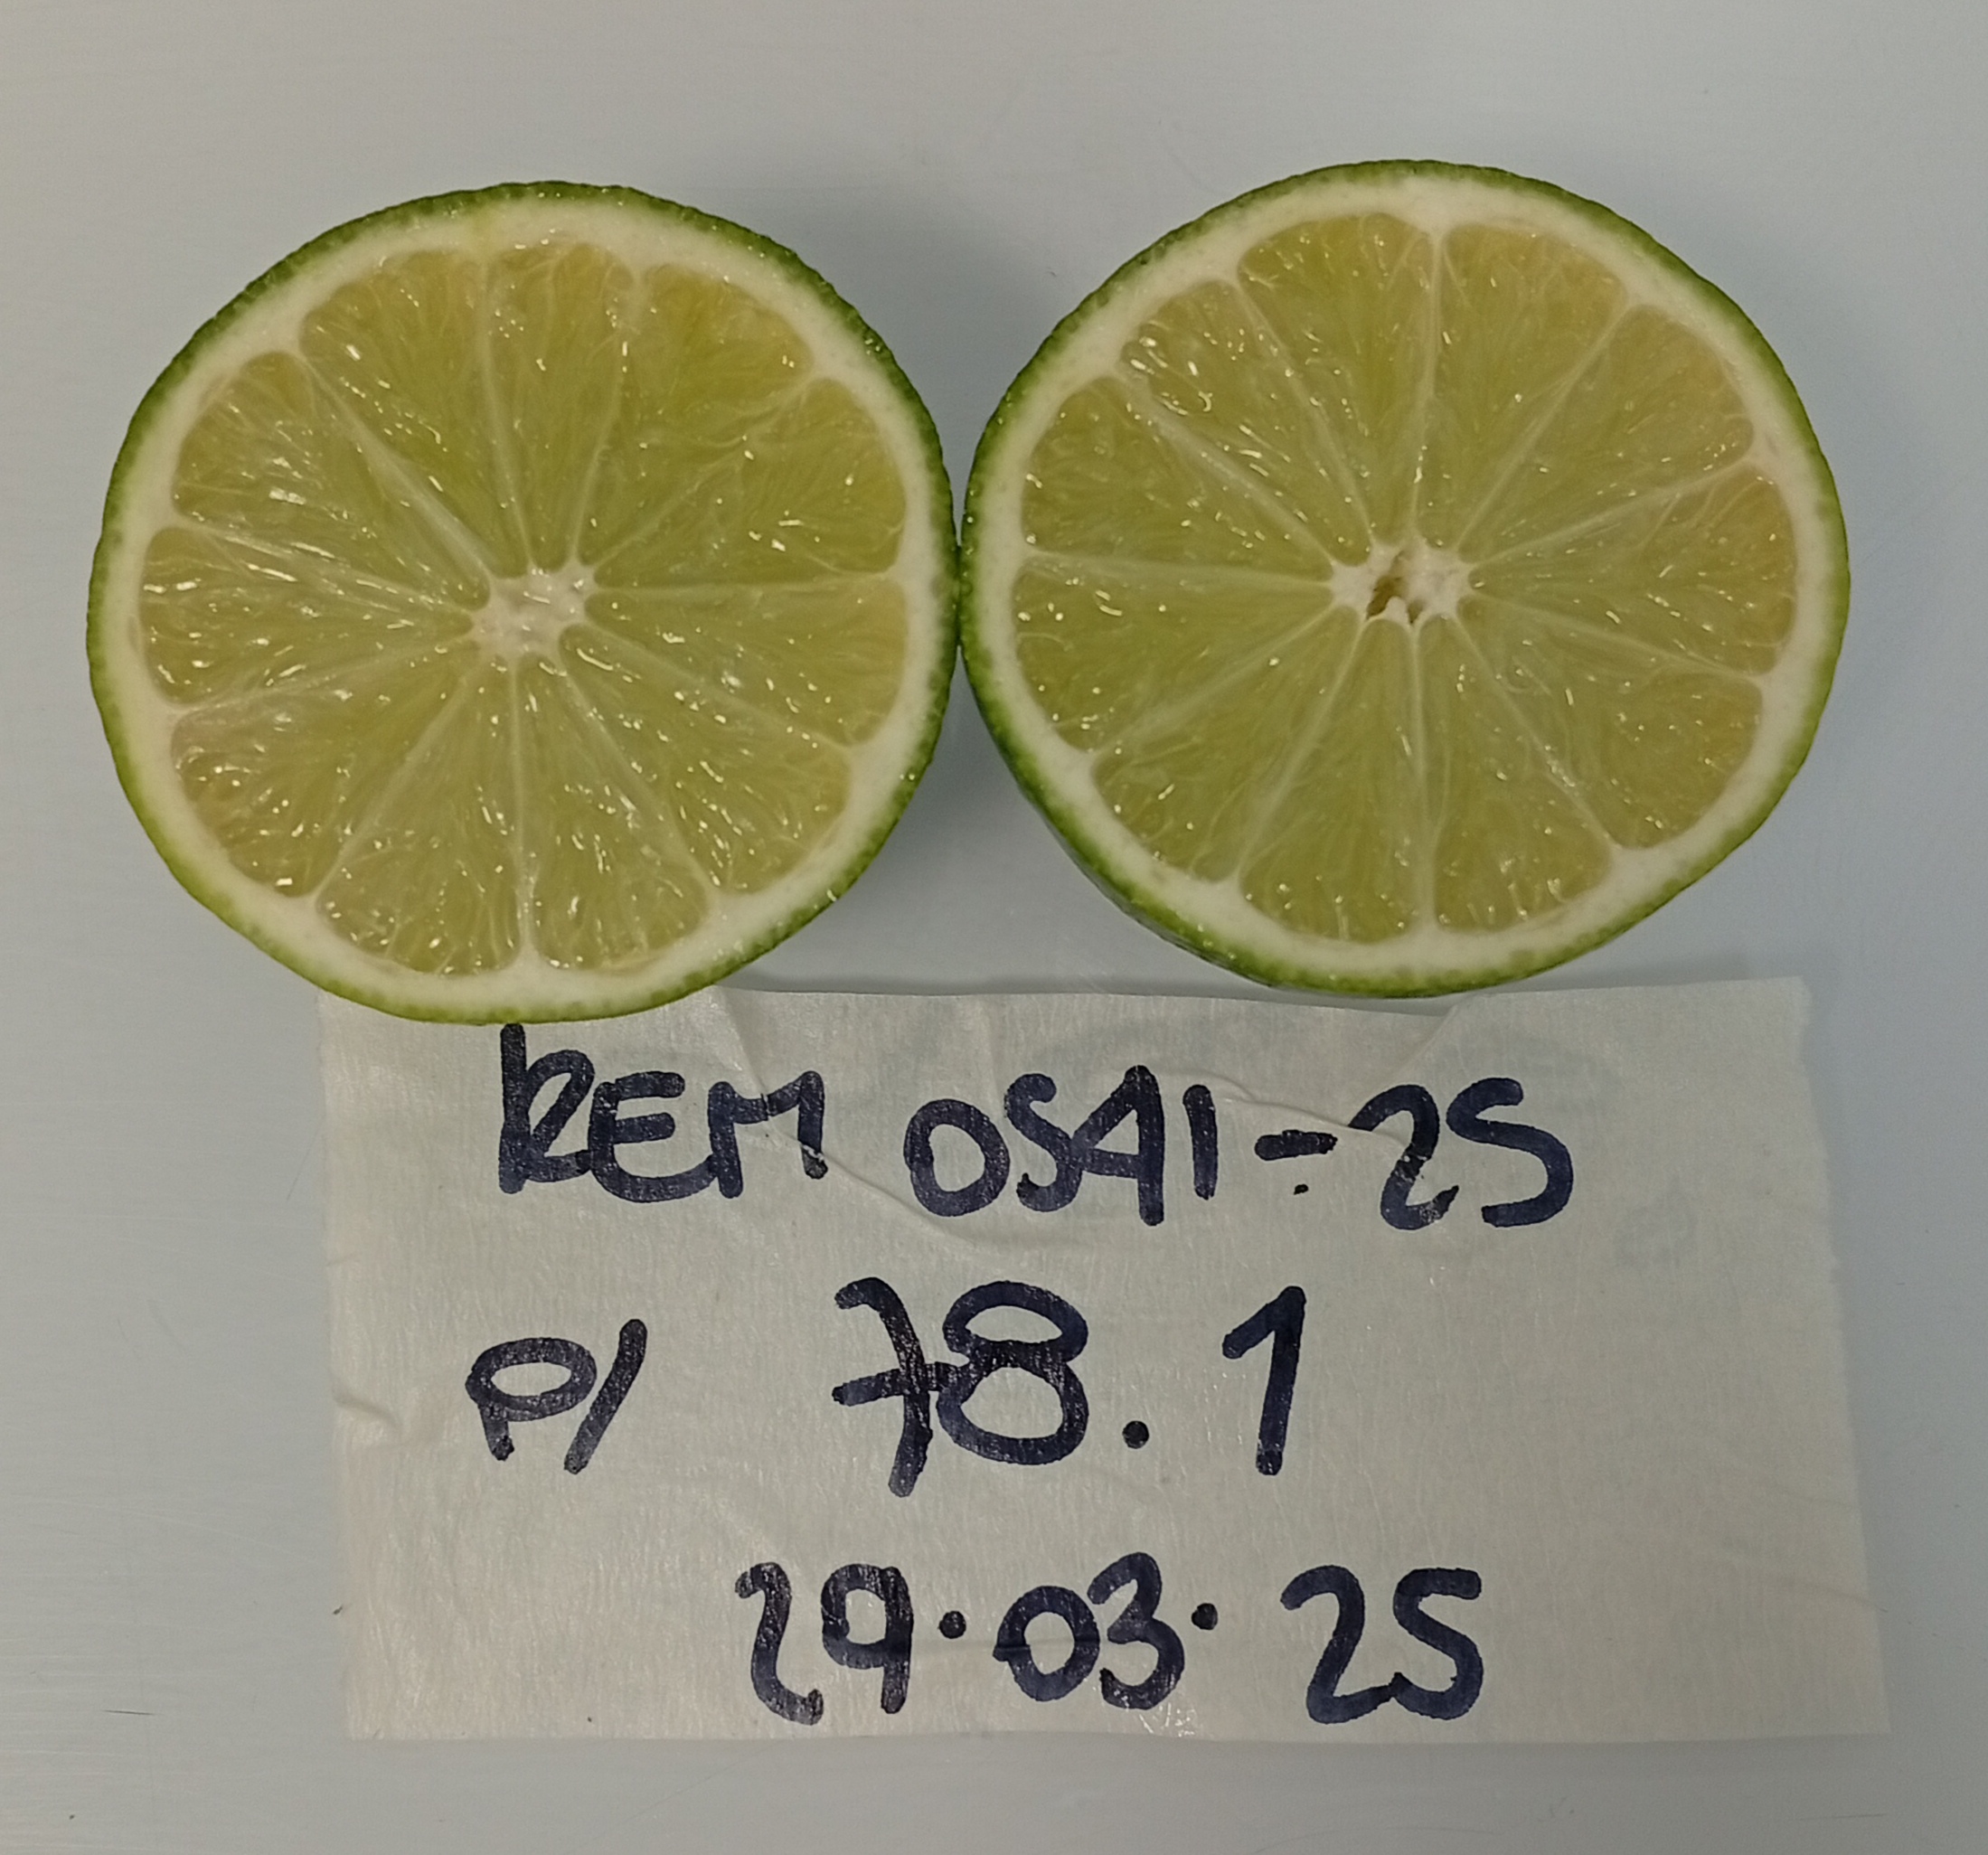 REM 0541-25
P/ 78.1
29.03.25